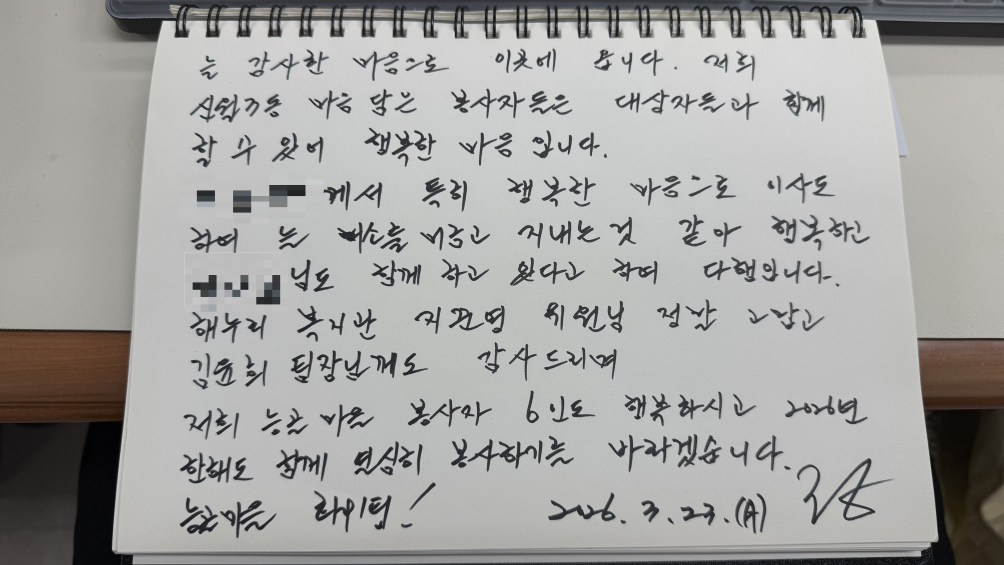 늘 감사한 마음으로 이곳에 옵니다. 저희
마음 담은 봉사자들은 대상자들과 함께
할 수 있어 행복한 마음입니다.
께서 특히 행복한 마음으로 이사도
하여 늘 미소를 머금고 지내는것 같아 행복하고
님도 함께 하고 있다고 하여 다행입니다.
해누리 복지관 지관영 위원님 정말 고맙고
김윤희 팀장님께도 감사드리며
저희 능곡마을 봉사자 6인도 행복하시고 2026년
한해도 함께 열심히 봉사하기를 바라겠습니다.
능곡마을 화이팅! 2026. 3. 23.